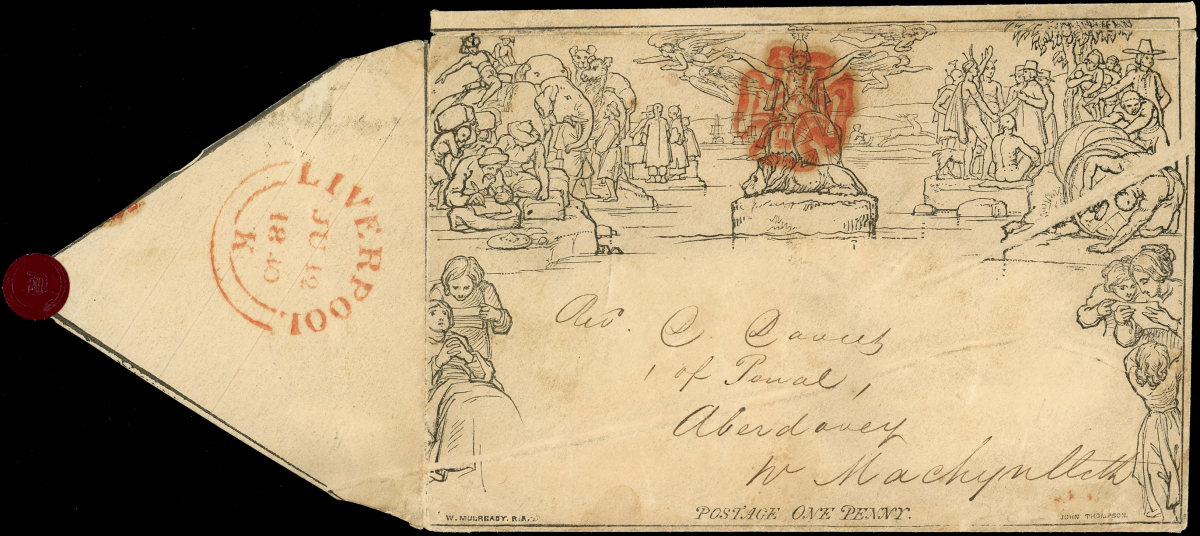 LIVERPOOL
JU 12
1840
K
Rev. C. Davies
of Penal,
Aberdovey
W Machynlleth
W. MULREADY. R.A.
POSTAGE ONE PENNY.
JOHN THOMPSON.